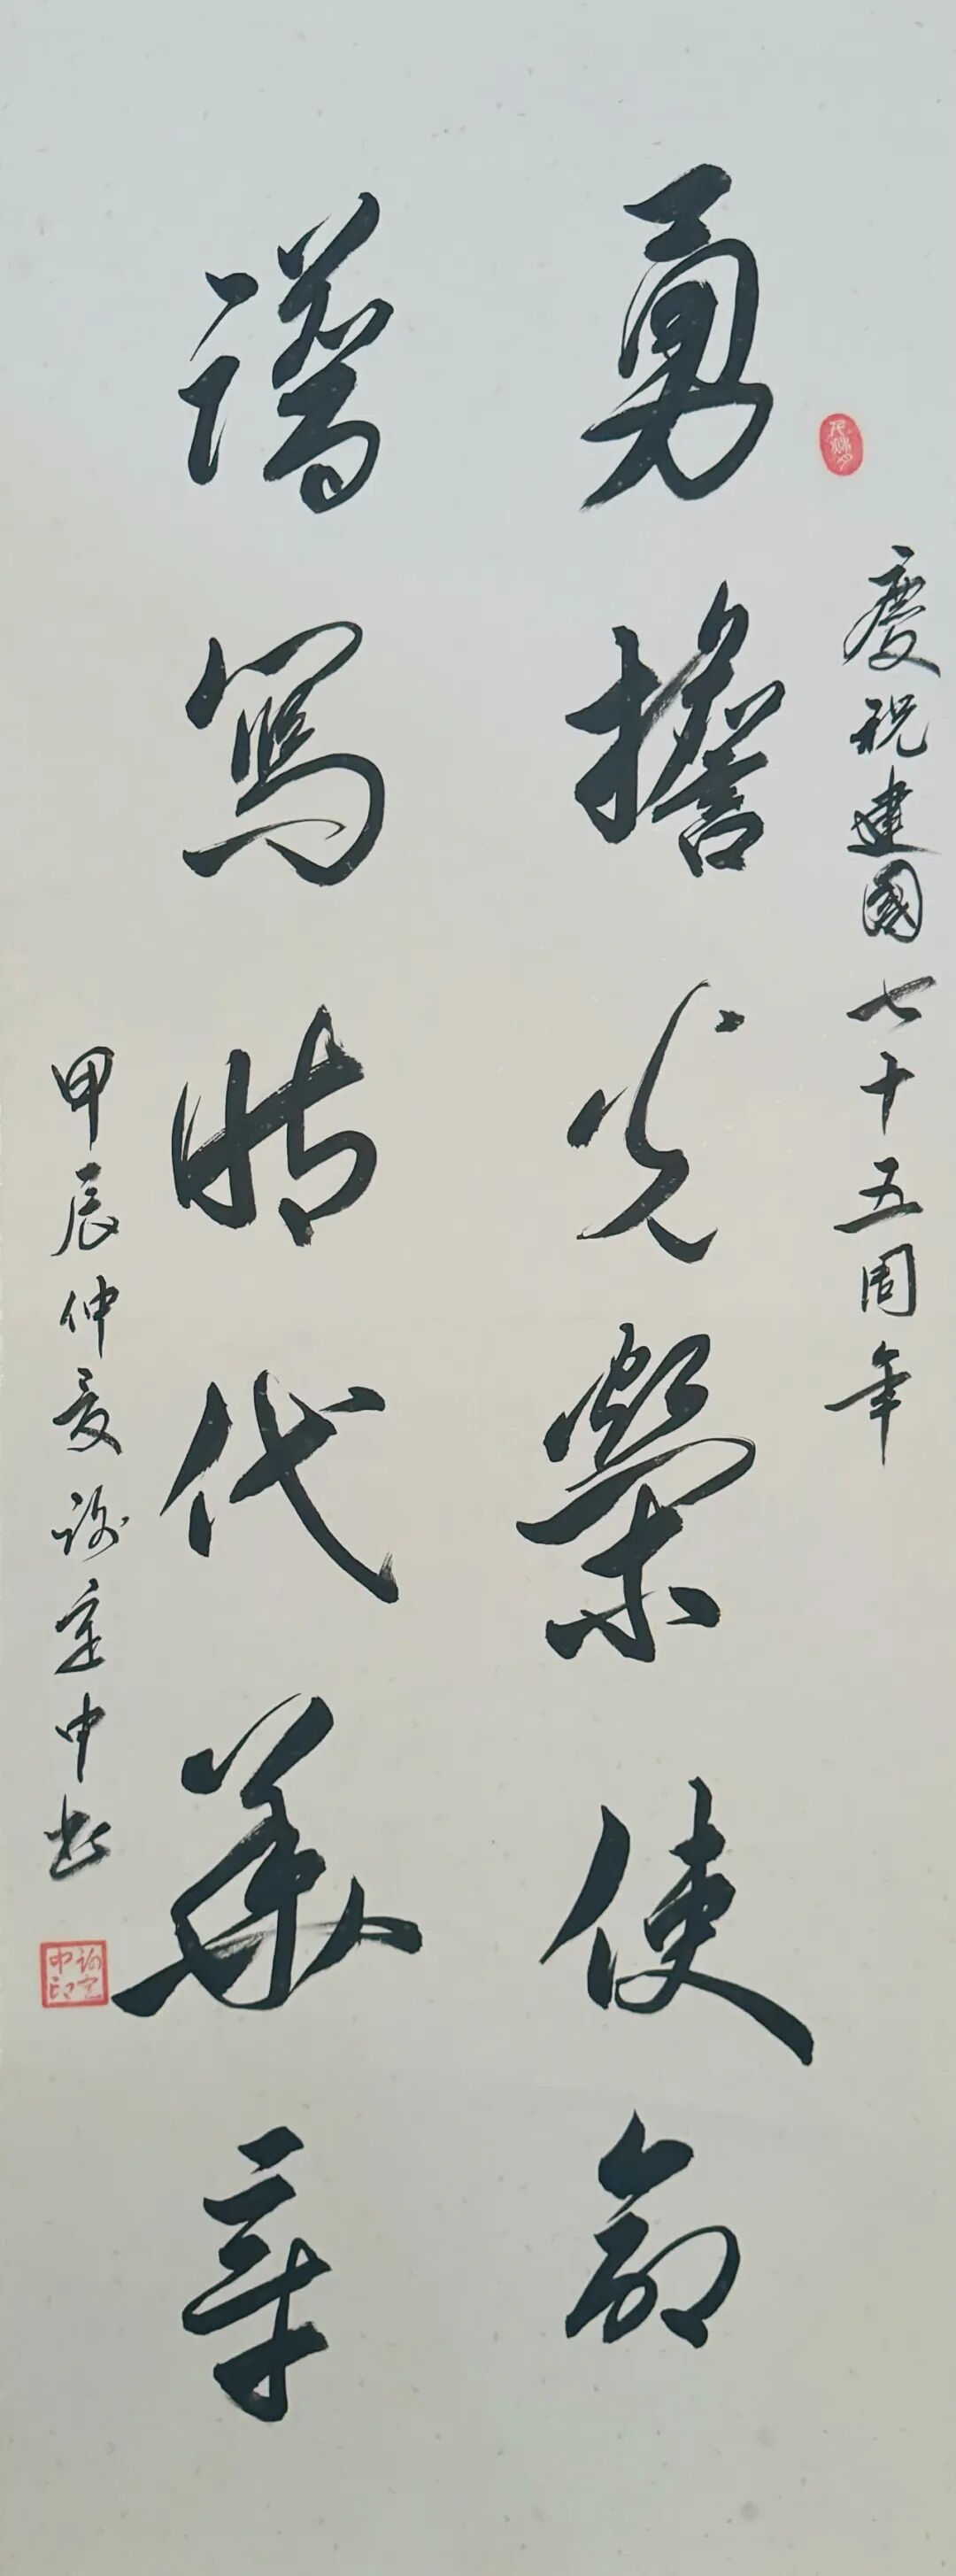 慶祝建國七十五周年
勇擔光榮使命
譜寫時代華章
甲辰仲夏謝定中書
謝定中印